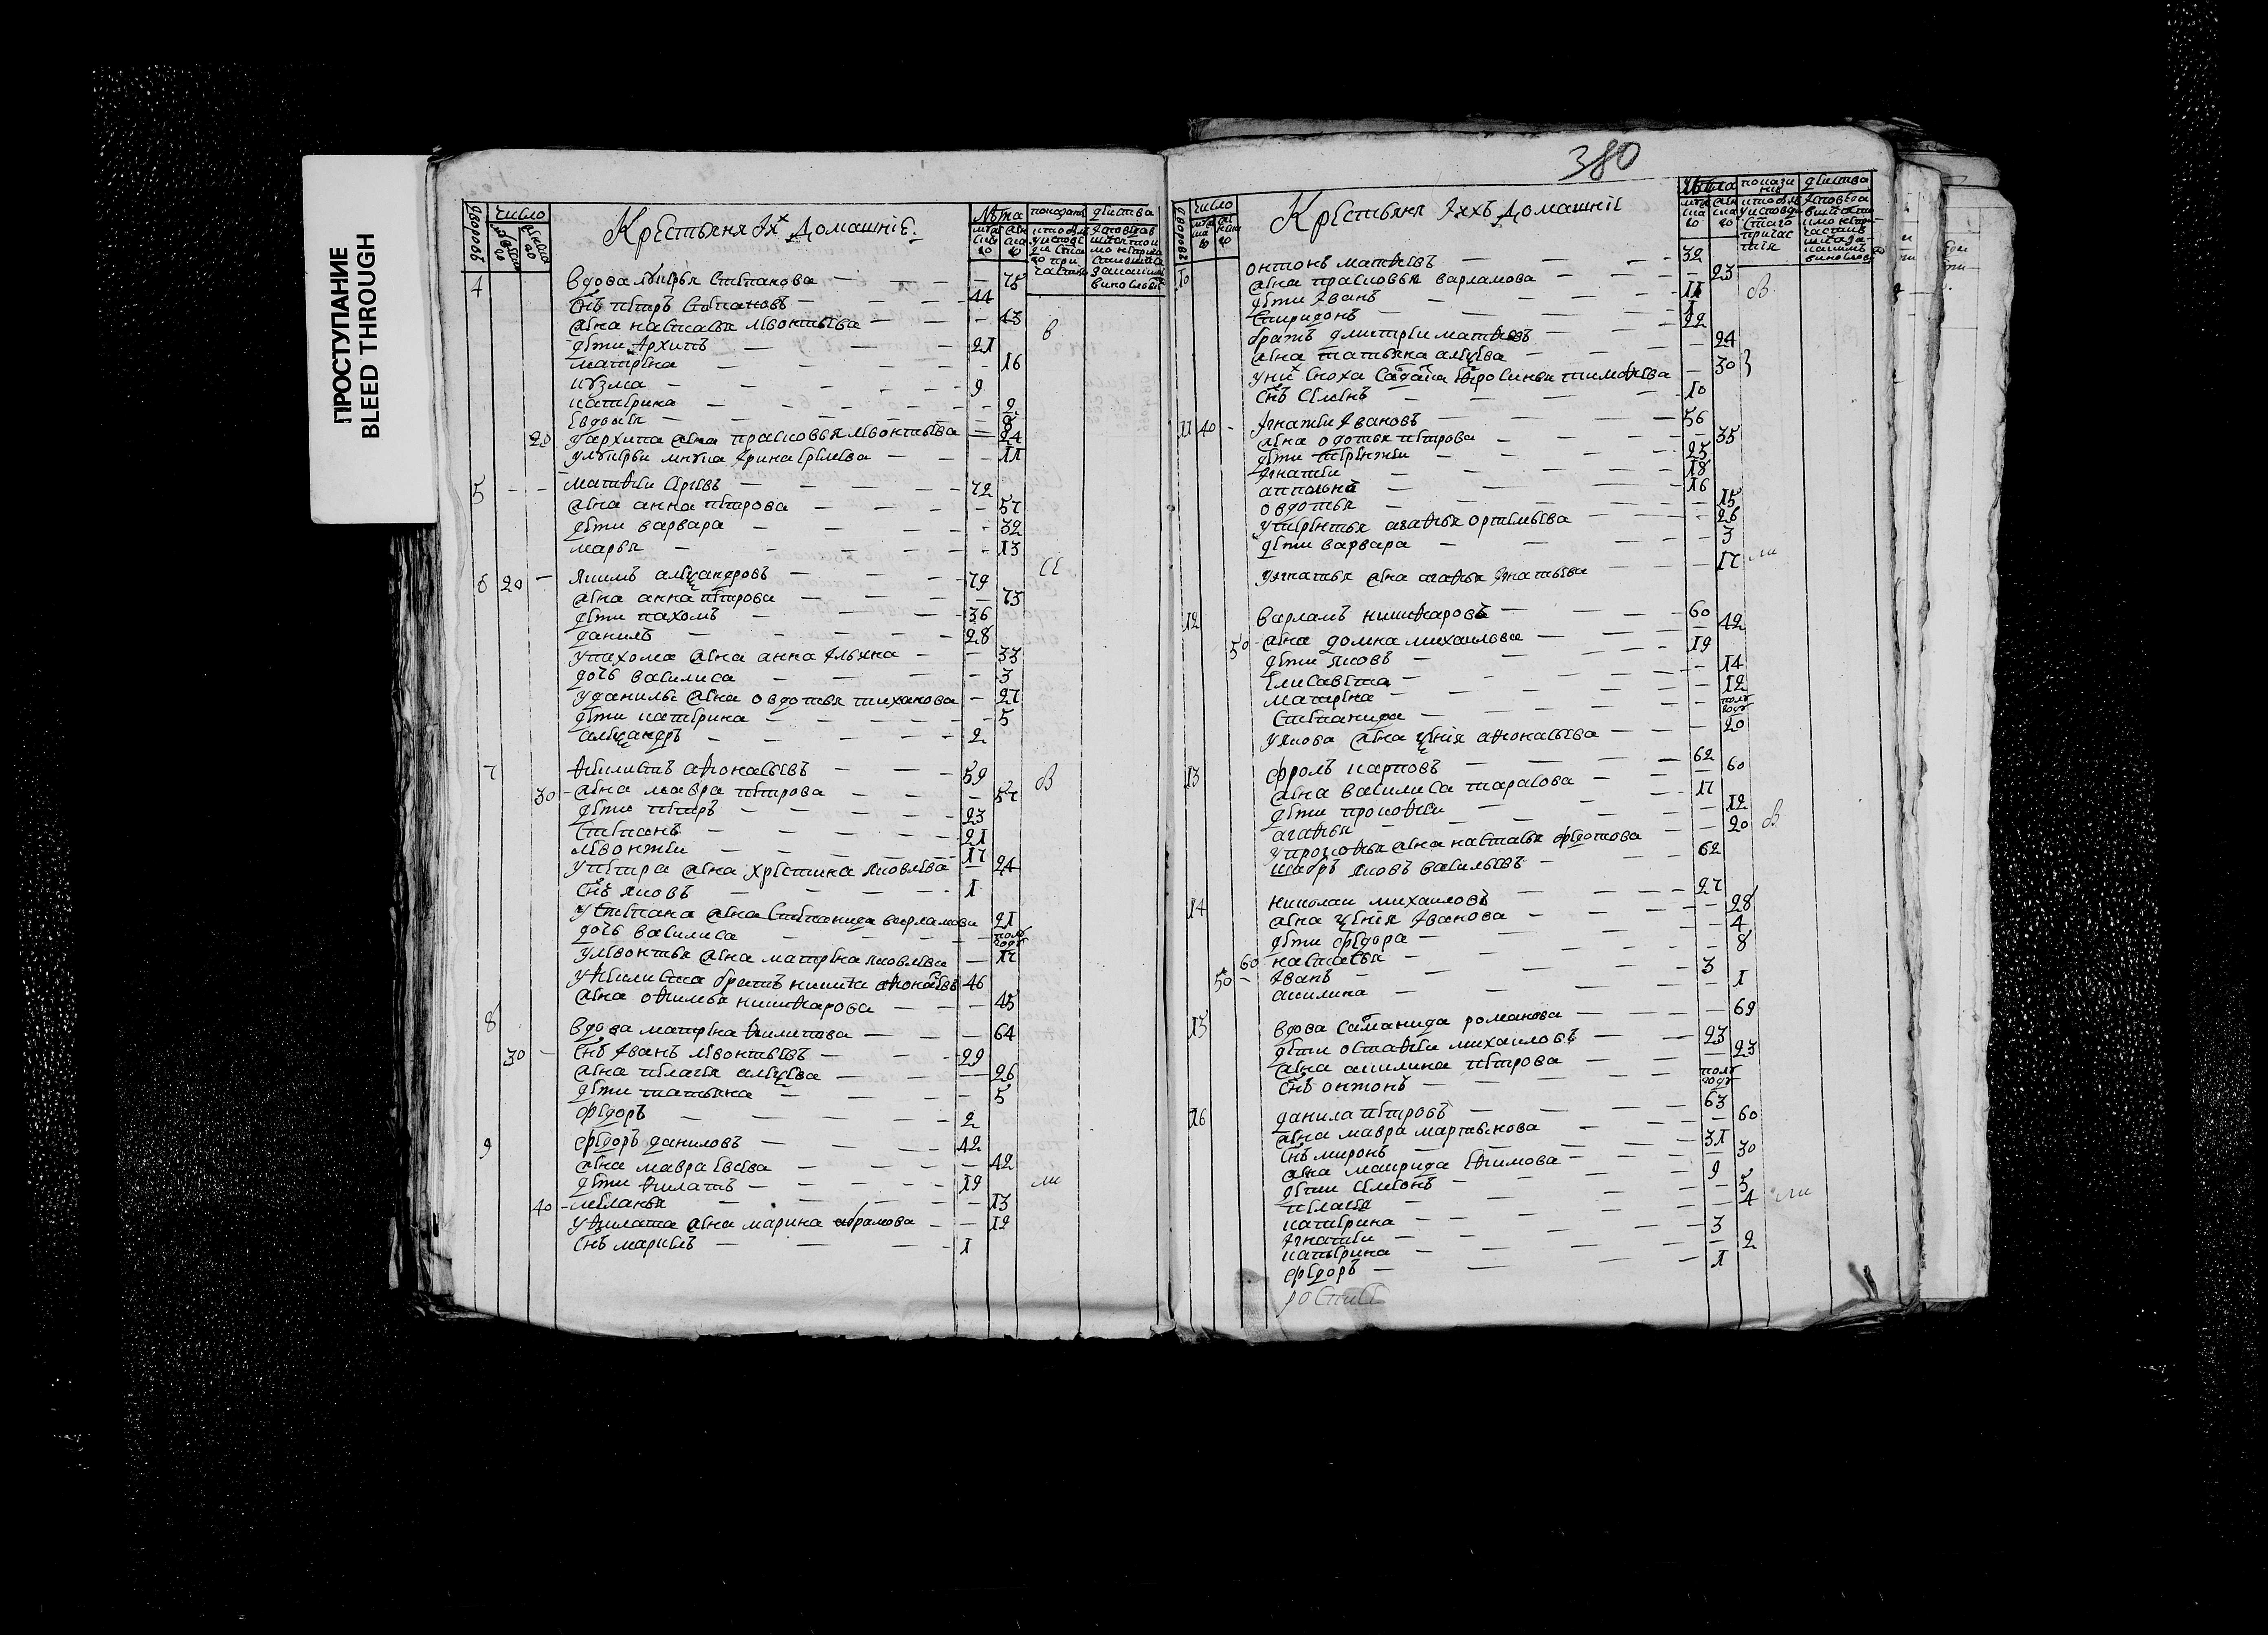 ПРОСТУПАНИЕ
BLEED THROUGH
380
число
Крестьяня Ихъ Домашние.
Лѣта
4 вдова лукерья степанова — 75
снъ петръ степановъ — 44
жена настасья левонтьева — 43
дети архипъ — 21
матрена — 16
кузма — 9
катерина — 2
евдокѣя
20 у архипа жена прасковья левонтьева — 24
у лукерьи внука ирина
5 матфеи сергевъ — 72
жена анна петрова — 57
дети варвара — 32
марья — 13
6 20 якимъ алеѯандровъ — 79
жена анна петрова — 73
дети пахомъ — 36
данилъ — 28
у пахома жена анна ильина — 33
дочь василиса — 3
у данилы жена овдотья тиханова — 27
дети катерина — 5
алеѯандръ — 2
7 ѳилипъ аѳонасьевъ — 59
30 жена мавра петрова — 57
дети петръ — 23
степанъ — 21
левонтеи — 17
у петра жена хрестина яковлева — 24
снъ яковъ — 1
у степана жена степанида варламова 21
дочь василиса — полугоду
у левонтья жена матрена яковлева — 17
у ѳилипа братъ никита аѳонасьевъ 46
жена оѳимья никиѳарова — 45
8 вдова матрена ѳилипова — 64
30 снъ иванъ левонтьевъ — 29
жена пелагея алеѯева — 26
дети татьяна — 5
ѳедоръ — 2
9 ѳедоръ даниловъ — 42
жена мавра евсева — 42
дети ѳилатъ — 19
40 меланья — 13
у ѳилата жена марина абрамова — 12
снъ маркелъ — 1
число
Крестьяня Ихъ Домашние
Лѣта
10 онтонъ матѳеевъ — 32
жена прасковья варламова — 23
дети иванъ — 11
спиридонъ — 1
братъ дмитреи матѳеевъ — 22
жена татьяна алеѯева — 24
снъ семенъ — 10
11 40 игнатеи ивановъ — 56
жена одотья петрова — 35
дети терентеи — 25
игнатеи — 18
16
овдотья — 15
у терентья агаѳья ортемьева — 26
дети варвара — 3
у игнатья жена агаѳья игнатьева — 17
12 варламъ никиѳаровъ — 60
50 жена домна михаилова — 42
дети яковъ — 19
елисавета — 14
матрена — 12
степанида — полугоду
у якова жена ѯения аѳонасьева — 20
13 фролъ карповъ — 62
жена василиса тарасова — 60
дети прокоѳеи — 17
агаѳья — 12
у прокоѳья жена настасья ѳедотова — 20
яковъ васильевъ — 62
14 николаи михаиловъ — 27
жена ѯения иванова — 28
дети ѳедора — 4
60 настасья — 8
50 иванъ — 3
акилина — 1
15 вдова романова — 69
дети остаѳеи михаиловъ — 23
жена акилина петрова — 23
снъ онтонъ — полугоду
16 данила петровъ — 63
жена мавра мартьянова — 60
снъ миронъ — 31
жена маврида еѳимова — 30
дети семенъ — 9
пелагея — 5
катерина — 4
игнатеи — 3
катерина — 2
ѳедоръ — 1